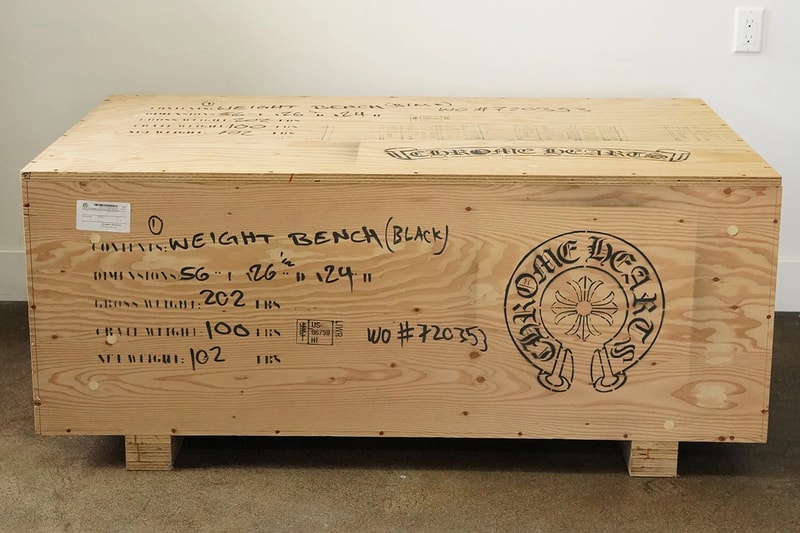 CONTENTS: ① WEIGHT BENCH (BLACK)
DIMENSIONS: 56 " L 26 " D 24 H
GROSS WEIGHT: 202 LBS
CRATE WEIGHT: 100 LBS
NET WEIGHT: 102 LBS
CHROME HEARTS
WO #720353
① CONTENTS: WEIGHT BENCH (BLACK)
DIMENSIONS: 56 " L 26 "W D 24 H
GROSS WEIGHT: 202 LBS
CRATE WEIGHT: 100 LBS
NET WEIGHT: 102 LBS
US-
06759
HT
LWR
WO #720353
CHROME HEARTS